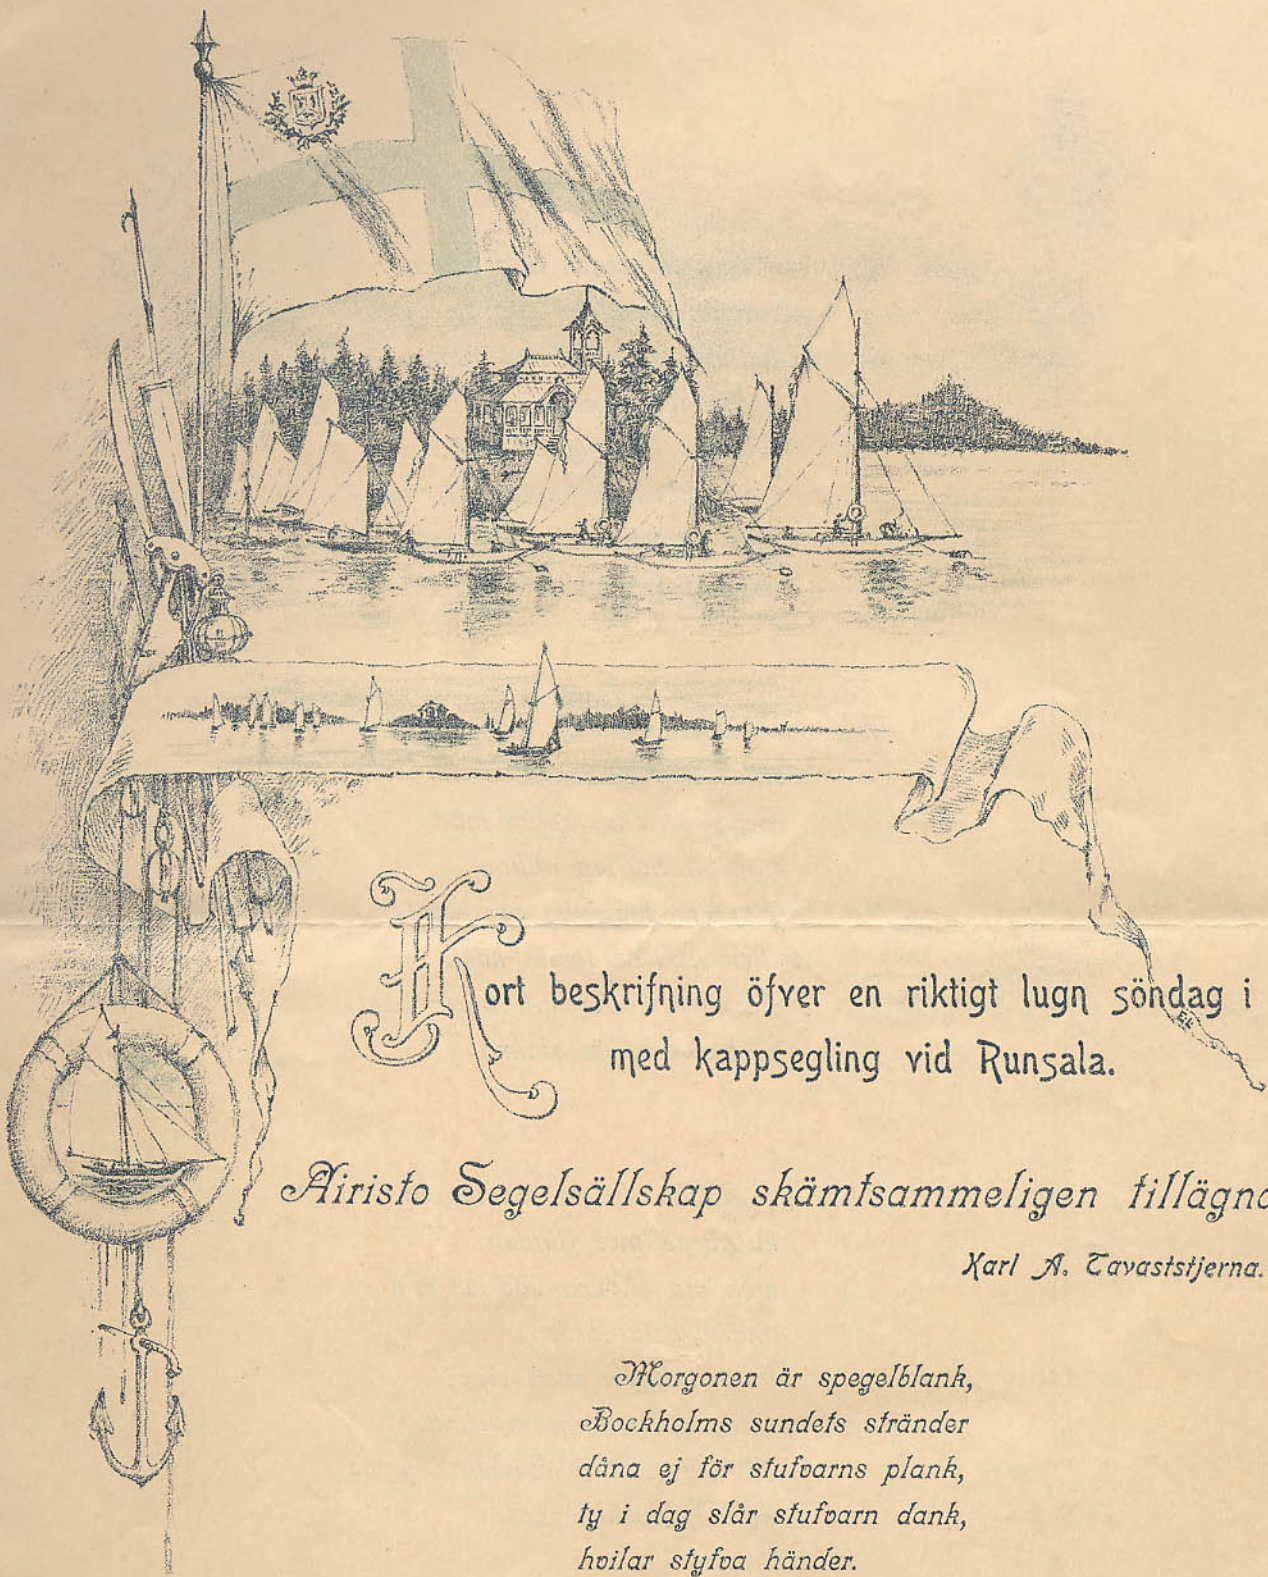 Kort beskrifning öfver en riktigt lugn söndag i
med kappsegling vid Runsala.
Airisto Segelsällskap skämtsammeligen tillägna
Karl A. Tavaststjerna.
Morgonen är spegelblank,
Bockholms sundets stränder
dåna ej för stufvarns plank,
ty i dag slår stufvarn dank,
hvilar styfva händer.